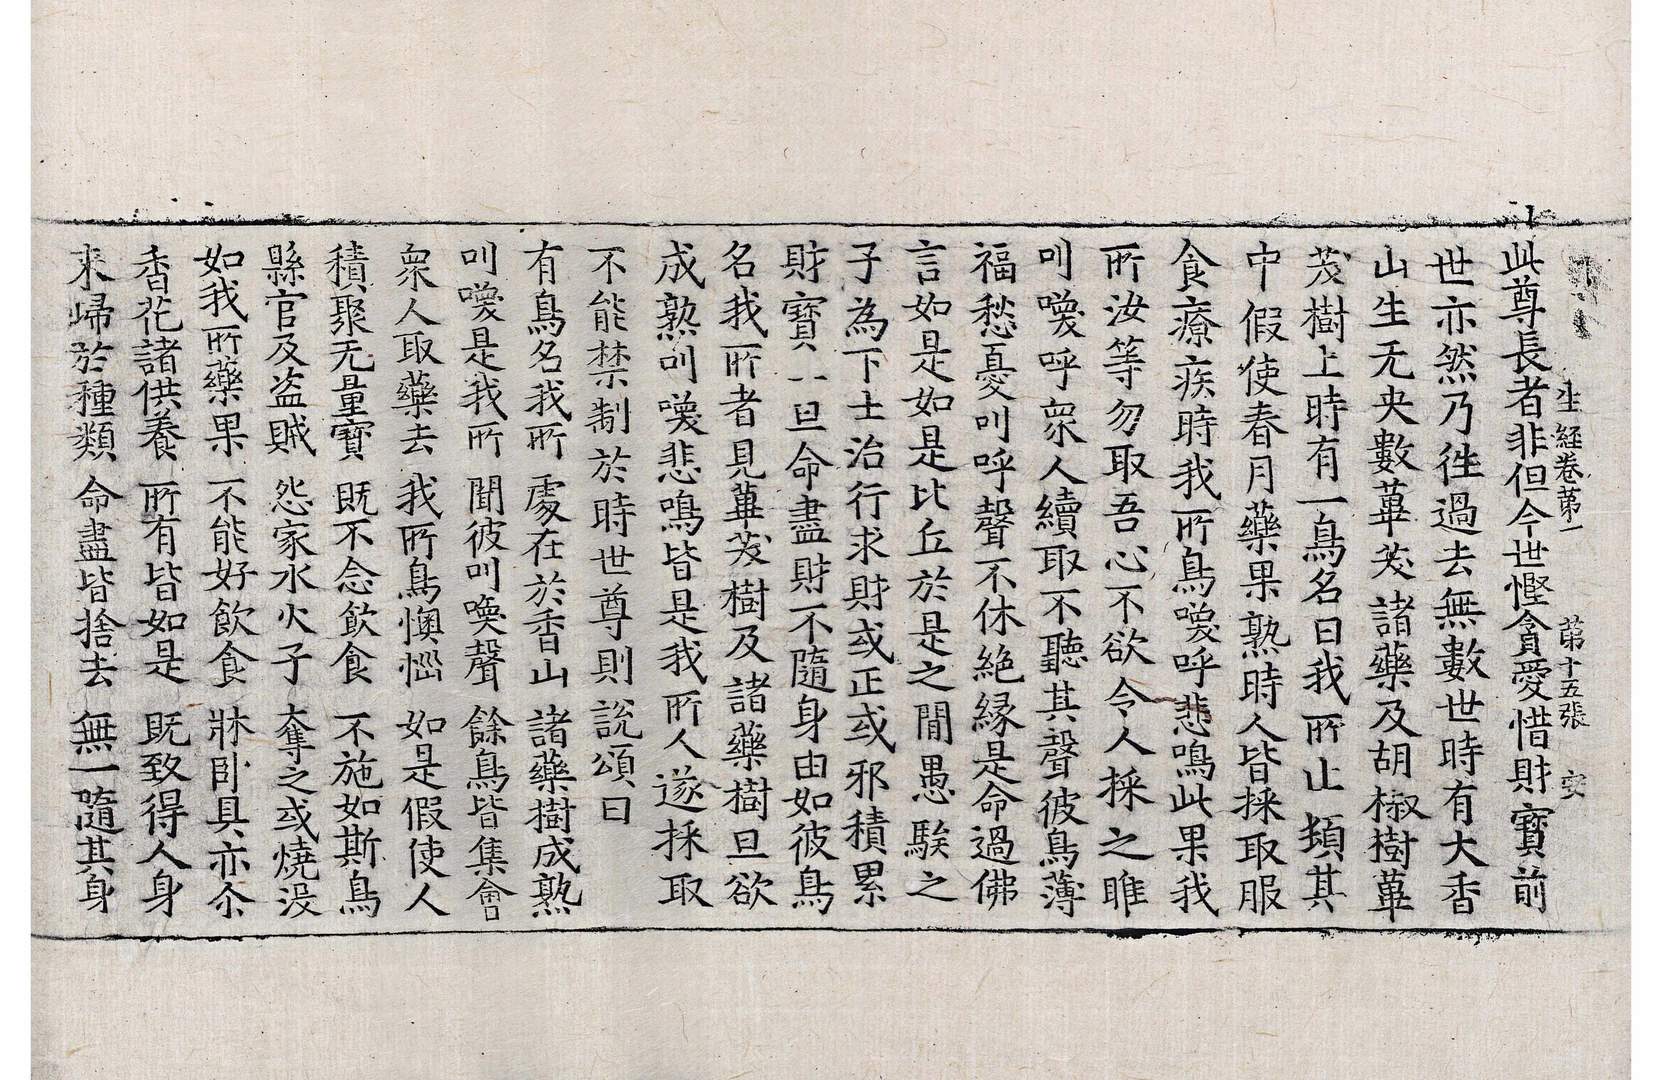 生經卷第一 第十五張 安
此尊長者非但今世慳貪愛惜財寶前
世亦然乃徃過去無數世時有大香
山生无央數蓽茇諸藥及胡椒樹蓽
茇樹上時有一鳥名曰我所止頓其
中假使春月藥果熟時人皆採取服
食療疾時我所鳥喚呼悲鳴此果我
所汝等勿取吾心不欲令人採之雖
叫喚呼衆人續取不聽其聲彼鳥薄
福愁憂叫呼聲不休絶緣是命過佛
言如是如是比丘於是之間愚騃之
子為下士治行求財或正或邪積累
財寶一旦命盡財不隨身由如彼鳥
名我所者見蓽茇樹及諸藥樹旦欲
成熟叫喚悲鳴皆是我所人遂採取
不能禁制於時世尊則說頌曰
有鳥名我所 處在於香山 諸藥樹成熟
叫喚是我所 聞彼叫喚聲 餘鳥皆集會
衆人取藥去 我所鳥懊惱 如是假使人
積聚无量寶 既不念飲食 不施如斯鳥
縣官及盗賊 怨家水火子 奪之或燒没
如我所藥果 不能好飲食 牀卧具亦尒
香花諸供養 所有皆如是 既致得人身
来歸於種類 命盡皆捨去 無一隨其身